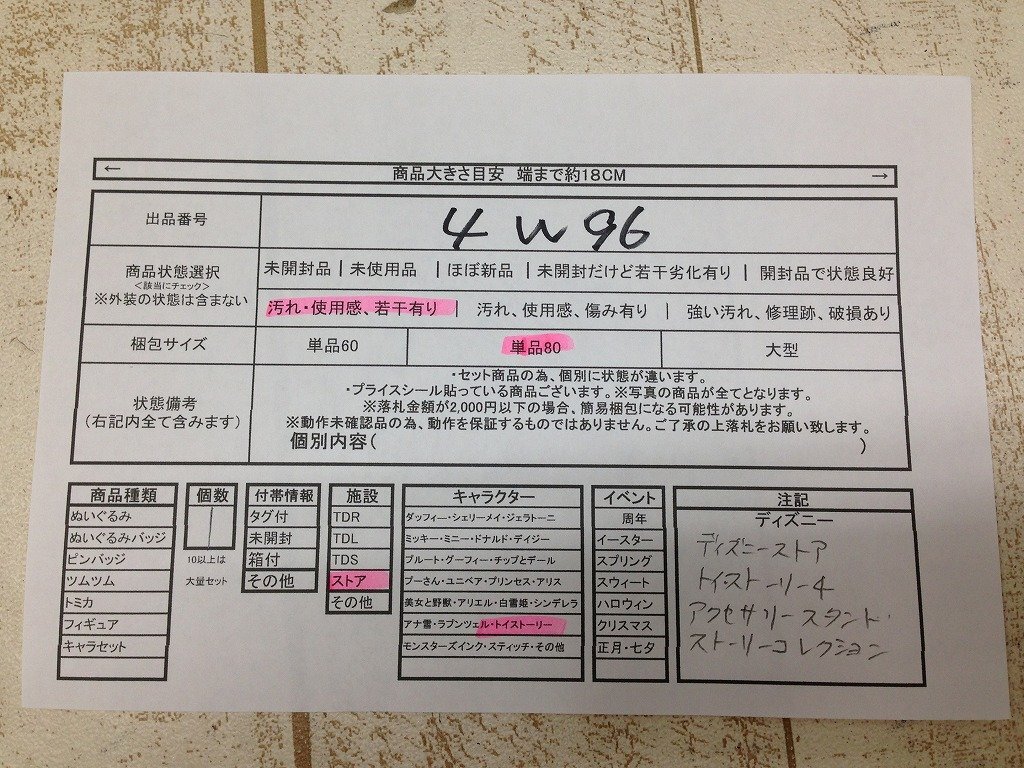 ← 商品大きさ目安 端まで約18CM →
出品番号 4W96
商品状態選択
<該当にチェック>
※外装の状態は含まない
未開封品 | 未使用品 | ほぼ新品 | 未開封だけど若干劣化有り | 開封品で状態良好
汚れ・使用感、若干有り | 汚れ、使用感、傷み有り | 強い汚れ、修理跡、破損あり
梱包サイズ 単品60 単品80 大型
状態備考
(右記内全て含みます)
・セット商品の為、個別に状態が違います。
・プライスシール貼っている商品ございます。※写真の商品が全てとなります。
※落札金額が2,000円以下の場合、簡易梱包になる可能性があります。
※動作未確認品の為、動作を保証するものではありません。ご了承の上落札をお願い致します。
個別内容( )
商品種類
ぬいぐるみ
ぬいぐるみバッジ
ピンバッジ
ツムツム
トミカ
フィギュア
キャラセット
個数
10以上は
大量セット
付帯情報
タグ付
未開封
箱付
その他
施設
TDR
TDL
TDS
ストア
その他
キャラクター
ダッフィー・シェリーメイ・ジェラトーニ
ミッキー・ミニー・ドナルド・デイジー
プルート・グーフィー・チップとデール
プーさん・ユニベア・プリンセス・アリス
美女と野獣・アリエル・白雪姫・シンデレラ
アナ雪・ラプンツェル・トイストーリー
モンスターズインク・スティッチ・その他
イベント
周年
イースター
スプリング
スウィート
ハロウィン
クリスマス
正月・七夕
注記
ディズニー
ディズニーストア
トイストーリー4
アクセサリースタンド・
ストーリーコレクション